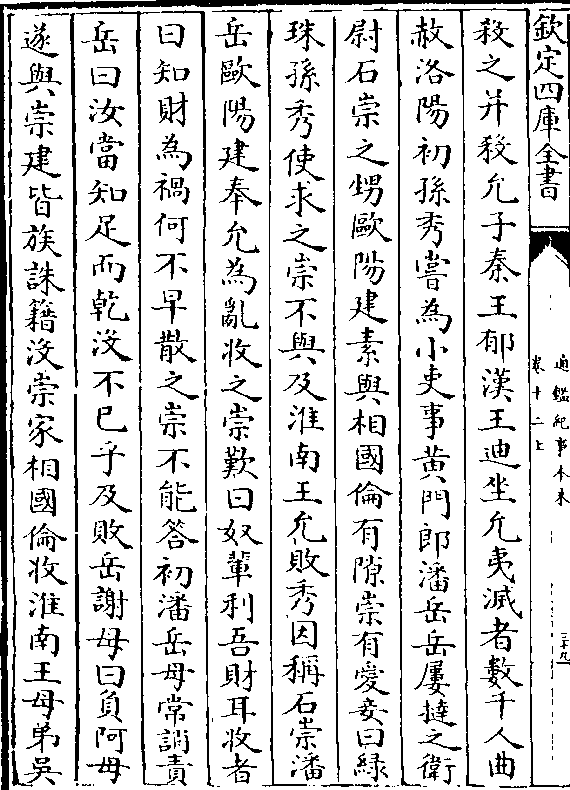 欽定四庫全書
通鑑紀事本末
卷十二上
三十九
殺之并殺允子秦王郁漢王迪坐允夷滅者數千人曲
赦洛陽初孫秀嘗為小吏事黃門郎潘岳岳屢撻之衛
尉石崇之甥歐陽建素與相國倫有隙崇有愛妾曰緑
珠孫秀使求之崇不與及淮南王允敗秀因稱石崇潘
岳歐陽建奉允為亂收之崇歎曰奴輩利吾財耳收者
曰知財為禍何不早散之崇不能答初潘岳母常誚責
岳曰汝當知足而乾沒不已乎及敗岳謝母曰負阿母
遂與崇建皆族誅籍沒崇家相國倫收淮南王母弟吳